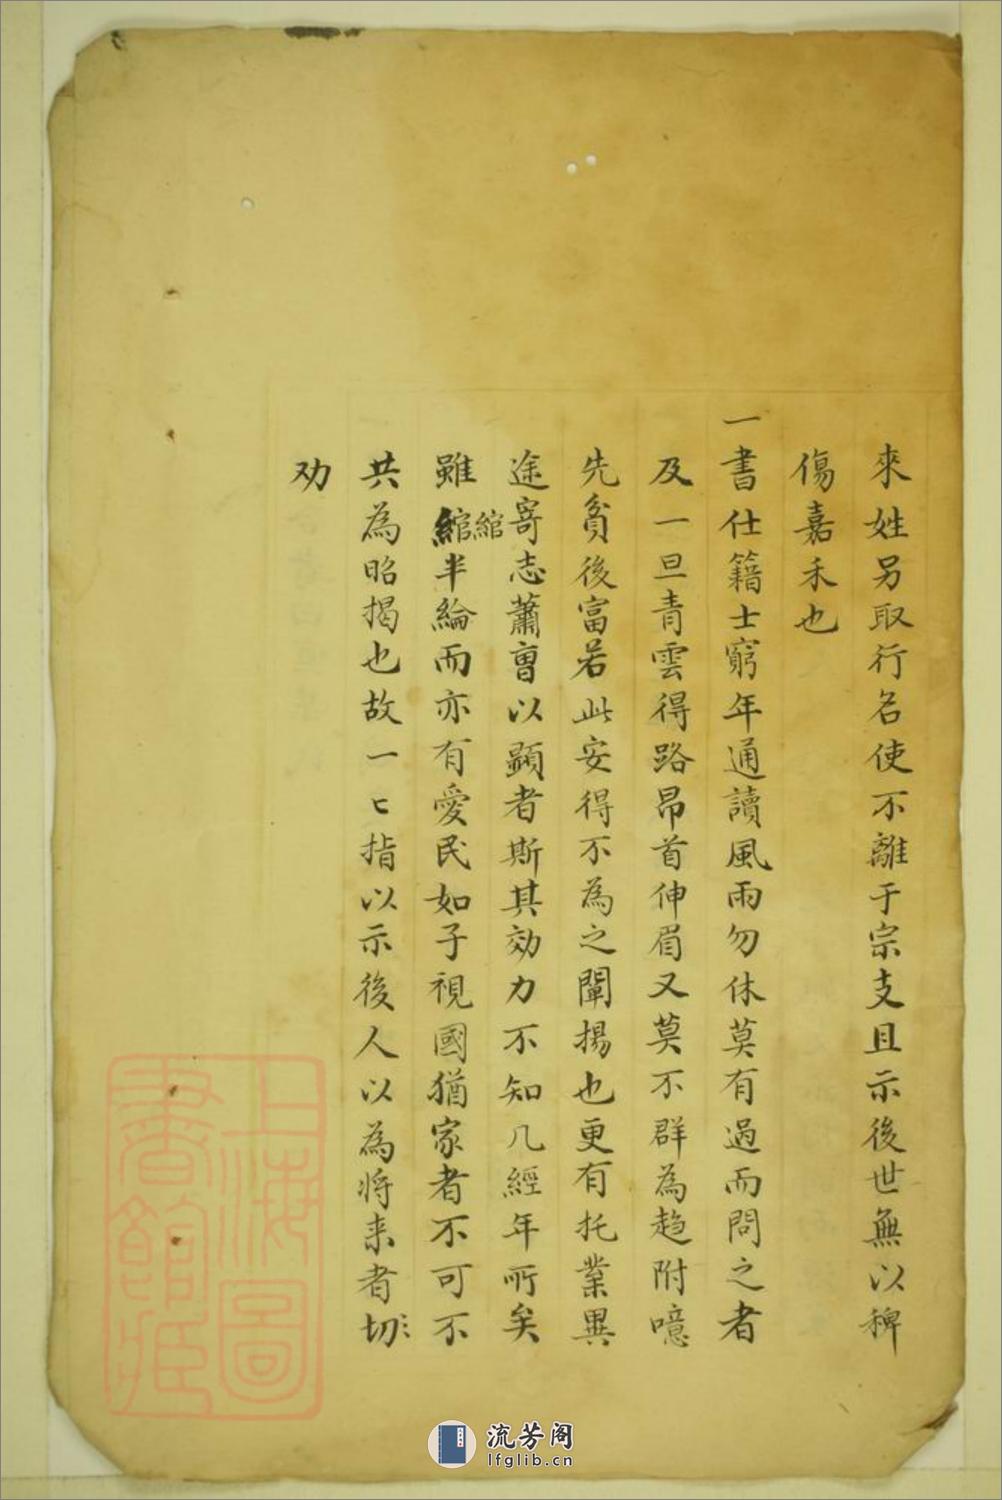 來姓另取行名使不離于宗支且示後世無以稗
傷嘉禾也
一書仕籍士窮年通讀風雨勿休莫有過而問之者
及一旦青雲得路昂首伸眉又莫不群為趋附噫
先貧後富若此安得不為之闡揚也更有托業異
途寄志蕭曺以顕者斯其効力不知几經年所矣
雖綰半綸而亦有愛民如子視國猶家者不可不
綰
共為昭揭也故一匕指以示後人以為將来者切
劝
上海圖
書館藏
流芳阁
lfglib.cn